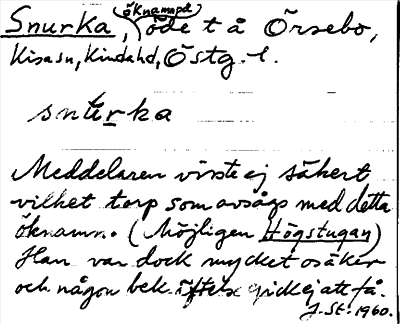 Snurka, (öknamn på) öde t å Örsebo,
Kisa sn, Kinda hd, Östg. l.
snùrka
Meddelaren visste ej säkert
vilket torp som avsågs med detta
öknamn. (Möjligen Högstugan)
Han var dock mycket osäker
och någon bekräftelse gick ej att få.
J. St. 1960.